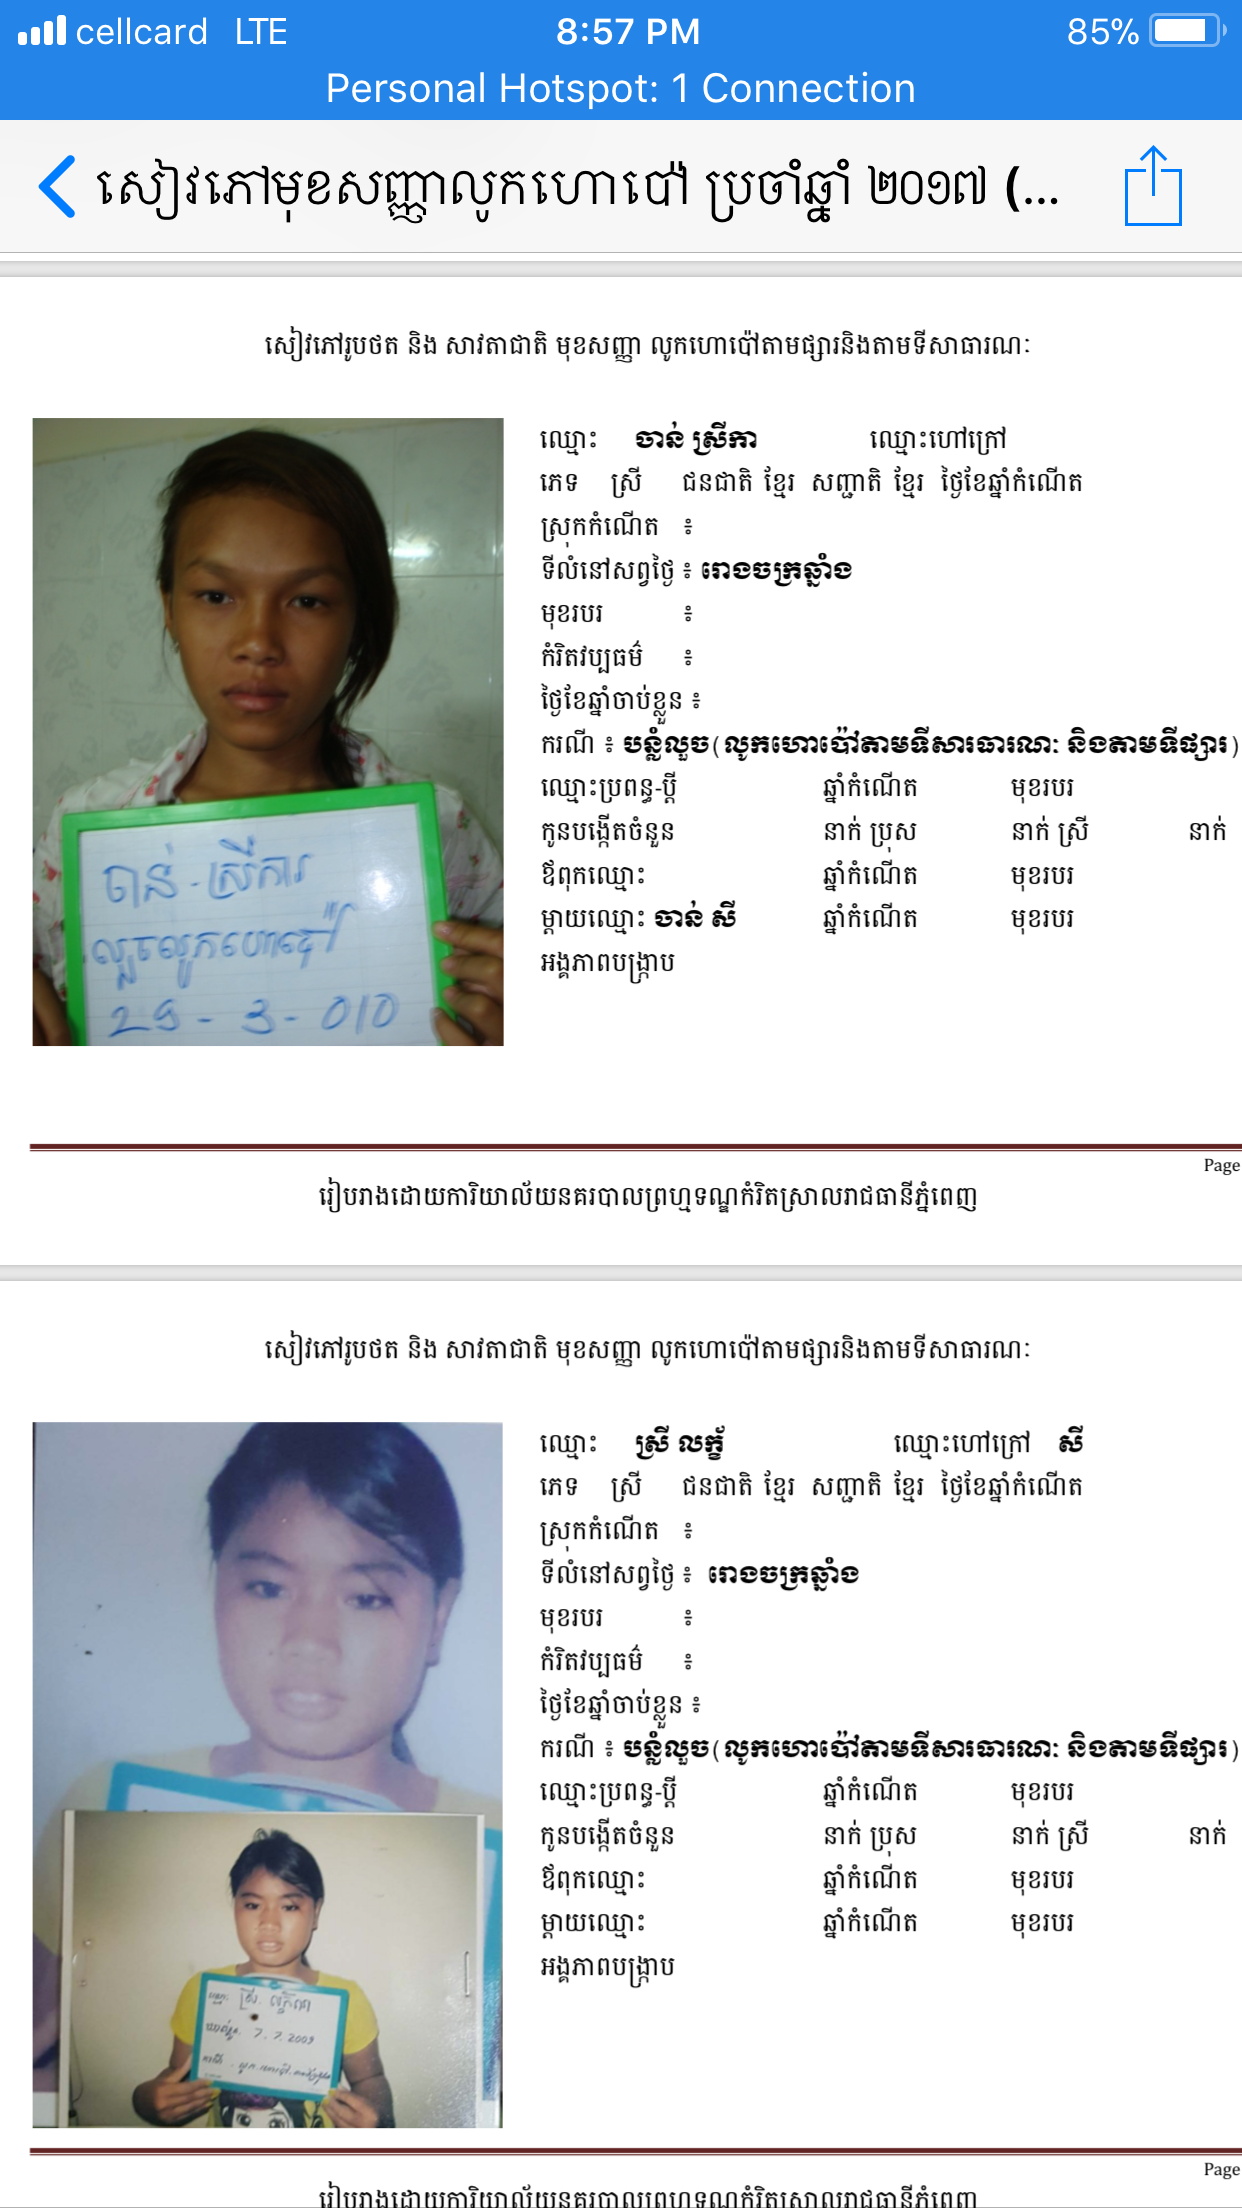 cellcard LTE 8:57 PM 85%
Personal Hotspot: 1 Connection
សៀវភៅមុខសញ្ញាលូកហោប៉ៅ ប្រចាំឆ្នាំ ២០១៧ (...
សៀវភៅរូបថត និង សាវតាជាតិ មុខសញ្ញា លូកហោប៉ៅតាមផ្សារនិងតាមទីសាធារណៈ
ឈ្មោះ ចាន់ ស្រីកា ឈ្មោះហៅក្រៅ
ភេទ ស្រី ជនជាតិ ខ្មែរ សញ្ជាតិ ខ្មែរ ថ្ងៃខែឆ្នាំកំណើត
ស្រុកកំណើត ៖
ទីលំនៅសព្វថ្ងៃ ៖ រោងចក្រឆ្នាំង
មុខរបរ ៖
កំរិតវប្បធម៌ ៖
ថ្ងៃខែឆ្នាំចាប់ខ្លួន ៖
ករណី ៖ បន្លំលួច(លូកហោប៉ៅតាមទីសារធារណៈ និងតាមទីផ្សារ)
ឈ្មោះប្រពន្ធ-ប្តី ឆ្នាំកំណើត មុខរបរ
កូនបង្កើតចំនួន នាក់ ប្រុស នាក់ ស្រី នាក់
ឪពុកឈ្មោះ ឆ្នាំកំណើត មុខរបរ
ម្តាយឈ្មោះ ចាន់ សី ឆ្នាំកំណើត មុខរបរ
អង្គភាពបង្ក្រាប
ចាន់ - ស្រីការ
លួចលូកហោប៉ៅ
29 - 3 - 010
Page
រៀបរាងដោយការិយាល័យនគរបាលព្រហ្មទណ្ឌកំរិតស្រាលរាជធានីភ្នំពេញ
សៀវភៅរូបថត និង សាវតាជាតិ មុខសញ្ញា លូកហោប៉ៅតាមផ្សារនិងតាមទីសាធារណៈ
ឈ្មោះ ស្រី លក្ខ័ ឈ្មោះហៅក្រៅ សី
ភេទ ស្រី ជនជាតិ ខ្មែរ សញ្ជាតិ ខ្មែរ ថ្ងៃខែឆ្នាំកំណើត
ស្រុកកំណើត ៖
ទីលំនៅសព្វថ្ងៃ ៖ រោងចក្រឆ្នាំង
មុខរបរ ៖
កំរិតវប្បធម៌ ៖
ថ្ងៃខែឆ្នាំចាប់ខ្លួន ៖
ករណី ៖ បន្លំលួច(លូកហោប៉ៅតាមទីសារធារណៈ និងតាមទីផ្សារ)
ឈ្មោះប្រពន្ធ-ប្តី ឆ្នាំកំណើត មុខរបរ
កូនបង្កើតចំនួន នាក់ ប្រុស នាក់ ស្រី នាក់
ឪពុកឈ្មោះ ឆ្នាំកំណើត មុខរបរ
ម្តាយឈ្មោះ ឆ្នាំកំណើត មុខរបរ
អង្គភាពបង្ក្រាប
ឈ្មោះ ស្រី
7. 7. 2009
Page
រៀបរាងដោយការិយាល័យនគរបាលព្រហ្មទណ្ឌកំរិតស្រាលរាជធានីភ្នំពេញ